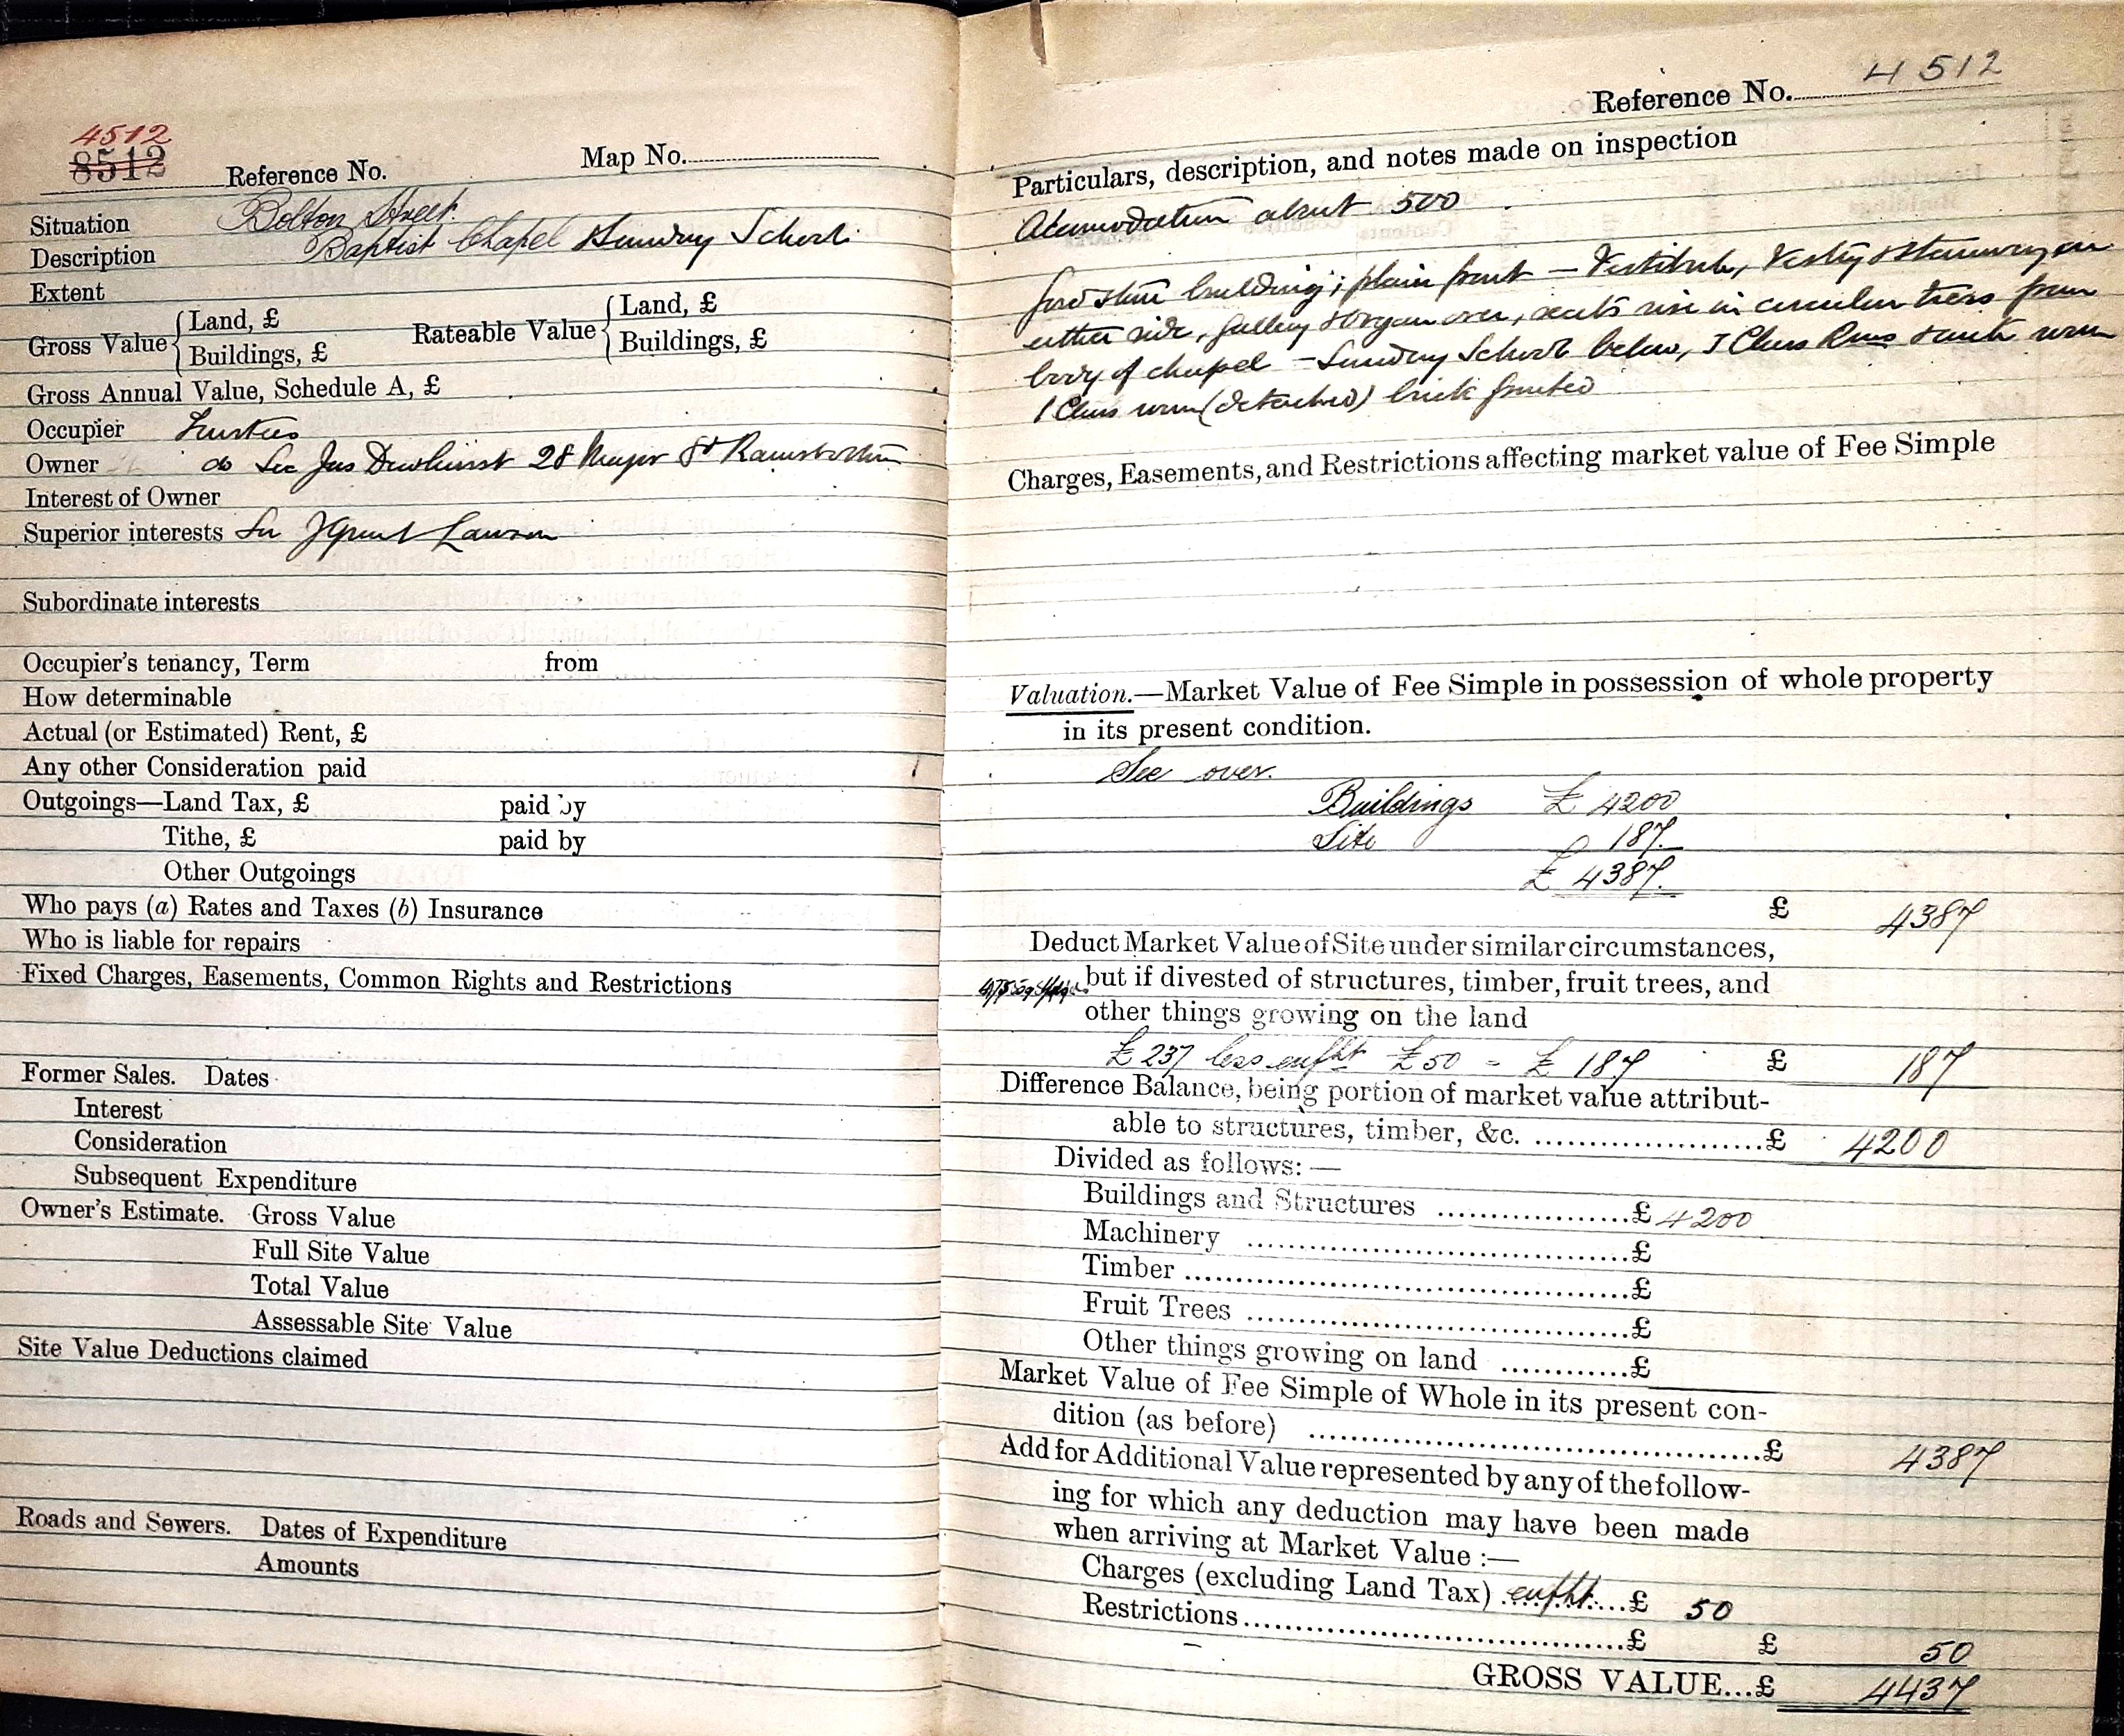 4512
8512 Reference No. Map No.
Situation Bolton Street.
Description Baptist Chapel Sunday School
Extent
Gross Value { Land, £ Rateable Value { Land, £
Buildings, £ Buildings, £
Gross Annual Value, Schedule A, £
Occupier Trustees
Owner do Sec Jas Dewhirst 28 Major St Ramsbottom
Interest of Owner
Superior interests Sir J Grant Lawson
Subordinate interests
Occupier's tenancy, Term from
How determinable
Actual (or Estimated) Rent, £
Any other Consideration paid
Outgoings—Land Tax, £ paid by
Tithe, £ paid by
Other Outgoings
Who pays (a) Rates and Taxes (b) Insurance
Who is liable for repairs
Fixed Charges, Easements, Common Rights and Restrictions
Former Sales. Dates
Interest
Consideration
Subsequent Expenditure
Owner's Estimate. Gross Value
Full Site Value
Total Value
Assessable Site Value
Site Value Deductions claimed
Roads and Sewers. Dates of Expenditure
Amounts
Reference No. 4512
Particulars, description, and notes made on inspection
Accomodation about 500
Good stone building; plain front — Vestibule, Vestry & stairway on
either side, gallery & organ over, seats rise in circular tiers from
body of chapel — Sunday School below, 5 Class Rms
1 Class room (detached) brick fronted
Charges, Easements, and Restrictions affecting market value of Fee Simple
Valuation.—Market Value of Fee Simple in possession of whole property
in its present condition.
See over.
Buildings £ 4200
Site 187.
£ 4387.
£ 4387
Deduct Market Value of Site under similar circumstances,
but if divested of structures, timber, fruit trees, and
other things growing on the land
£ 237 less enfht £ 50 = £ 187 £ 187
Difference Balance, being portion of market value attribut-
able to structures, timber, &c. £ 4200
Divided as follows: —
Buildings and Structures £ 4200
Machinery £
Timber £
Fruit Trees £
Other things growing on land £
Market Value of Fee Simple of Whole in its present con-
dition (as before) £ 4387
Add for Additional Value represented by any of the follow-
ing for which any deduction may have been made
when arriving at Market Value :—
Charges (excluding Land Tax) enfht. £ 50
Restrictions £ £ 50
GROSS VALUE...£ 4437